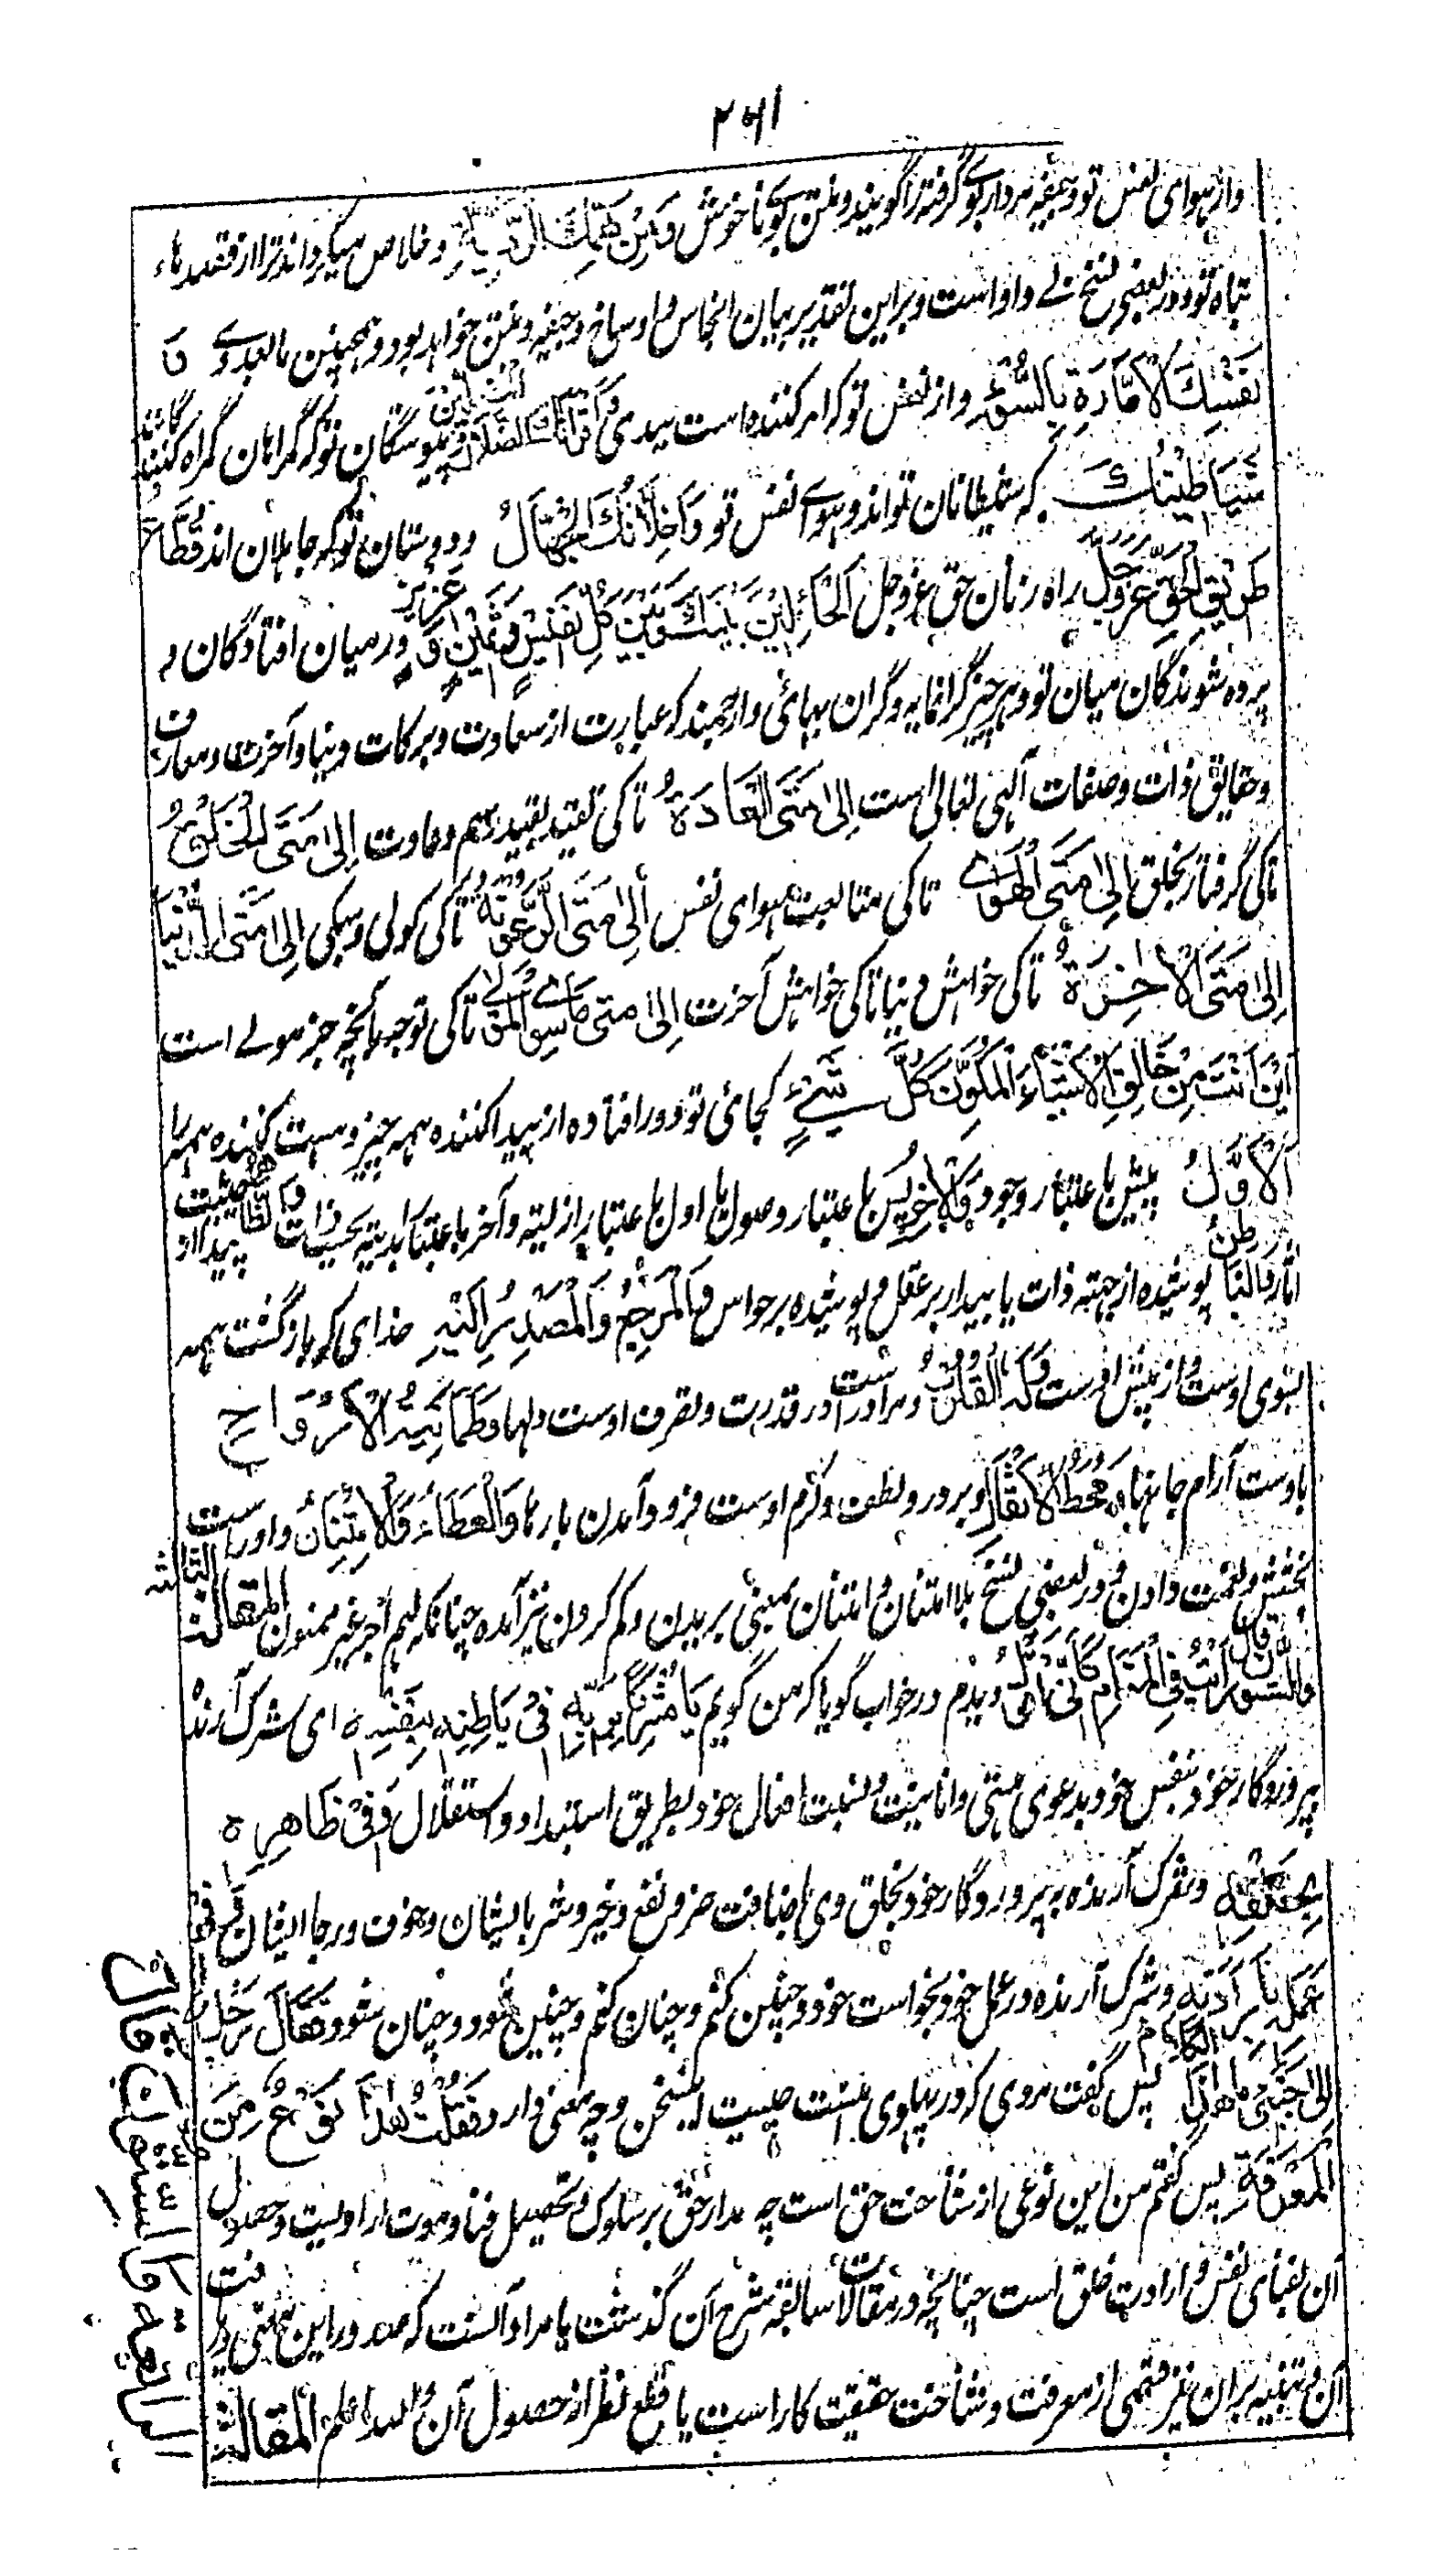 ۲۶۱
و از هوای نفس تو و جیفه مردار بوی گرفته را گویند و نتن بوی ناخوش و من همتک الردیة و خلاص میگرداند ترا از قصدهاء
تباه تو و در بعضی نسخ بے واو است و براین تقدیر بیان انجاس و اوساخ و جیفه و نتن خواهد بود و همچنین ما بعد وے و
نَفْسِكَ الْاَمَّارَةِ بِالسُّوْءِ و از نفس تو که امر کننده است ببدی و اقرانک الضلال و از همنشینان تو که گمراهان گمراه کنند
شَيَاطِيْنُكَ که شیطانان تواند و هواے نفس تو وَاَخِلَّائِكَ الْجُهَّالُ و دوستان تو که جاهلان اند قُطَّاعُ
طَرِيْقِ الْحَقِّ عَزَّ وَجَلَّ راه زنان حق عز و جل اَلْحَائِلِيْنَ بَيْنَكَ وَبَيْنَ كُلِّ نَفِيْسٍ وَثَمِيْنٍ وَعَزِيْزٍ و در میان افتادگان و
پرده شوندگان میان تو و هر چیز گرانمایه و گران بهائی و ارجمند که عبارت از سعادت و برکات دنیا و آخرت و معارف
و حقایق ذات و صفات آلهی تعالی است اِلٰی مَتَی الْعَادَةُ تا کی تقید بقید رسم و عادت اِلٰی مَتَی الْخَلْقُ
تا کی گرفتار بخلق اِلٰی مَتَی الْهَوٰے تا کی متابعت هوای نفس اِلٰی مَتَی الرَّعُوْنَةُ تا کی کولی و سبکی اِلٰی مَتَی الدُّنْيَا
اِلٰی مَتَی الْاٰخِرَةُ تا کی خواهش دنیا تا کی خواهش آخرت اِلٰی مَتٰی مَا سِوَی الْمَوْلٰے تا کی توجه بآنچه جز مولے است
اَيْنَ اَنْتَ مِنْ خَالِقِ الْاَشْيَاءِ الْمُكَوِّنِ كُلَّ شَیْءٍ کجائی تو دور افتاده از پیدا کننده همه چیز و هست کننده همه را
اَلْاَوَّلُ پیش باعتبار وجود وَالْاٰخِرُ پس باعتبار وصول یا اول باعتبار ازلیته و آخر باعتبار ابدیته بحسب ذات وَالظَّاهِرُ پیداست
آثار وَالْبَاطِنُ پوشیده از جهته ذات یا پیدا بر عقل و پوشیده بر حواس وَالْمَرْجِعُ وَالْمَصْدَرُ اِلَيْهِ خدای که بازگشت همه
بسوی اوست و از پیش اوست وَلَهُ الْقُلُوْبُ و مر او راست در قدرت و تصرف اوست دلها وَطُمَانِيْنَةُ الْاَرْوَاحِ
باوست آرام جانها وَ مَحَطُّ الْاَثْقَالِ و بر در و لطف و کرم اوست فرود آمدن بارها وَالْعَطَاءُ وَالْاِمْتِنَانُ و او راست
بخشش و نعمت دادن و در بعضی نسخ بلا امتنان و امتنان بمعنی بریدن و کم کردن نیز آمده چنانکه لهم اجر غیر ممنون المقالة الثانیة
والستون قال رَاَيْتُ فِی الْمَنَامِ كَاَنِّیْ اَقُوْلُ دیدم در خواب گویا که من گویم يَا مُشْرِكًا بِرَبِّهٖ فِیْ بَاطِنِهٖ بِنَفْسِهٖ ای شرک آرنده
پروردگار خود بنفس خود بدعوی هستی و انانیت و نسبت افعال خود بطریق استبداد و استقلال وَفِیْ ظَاهِرِهٖ
بِخَلْقِهٖ و شرک آرنده به پروردگار خود بخلق وی باضافت ضر و نفع و خیر و شر بایشان و خوف و رجا ایشان وَفِیْ
عَمَلِهٖ بِاِرَادَتِهٖ و شرک آرنده در عمل خود بخواست خود و چنین کنم و چنان کنم و چنین شود و چنان شود فَقَالَ رَجُلٌ
اِلٰی جَنْبِیْ مَا هٰذَا الْكَلَامُ پس گفت مردی که در پهلوی منست چیست این سخن و چه معنی دارد فَقُلْتُ هٰذَا نَوْعٌ مِنَ
الْمَعْرِفَةِ پس گفتم من این نوعی از شناخت حق است چه مدار حق بر سلوک و تحصیل فنا و موت ارادیست و حصول
آن بفنای نفس و ارادت خلق است چنانچه در مقالات سابقه شرح آن گذشت یا مراد آنست که در این معنی دریافت
آن و تنبیه بر آن نیز قسمی از معرفت و شناخت حقیقت کار است یا قطع نظر از حصول آن و الله اعلم المقالة